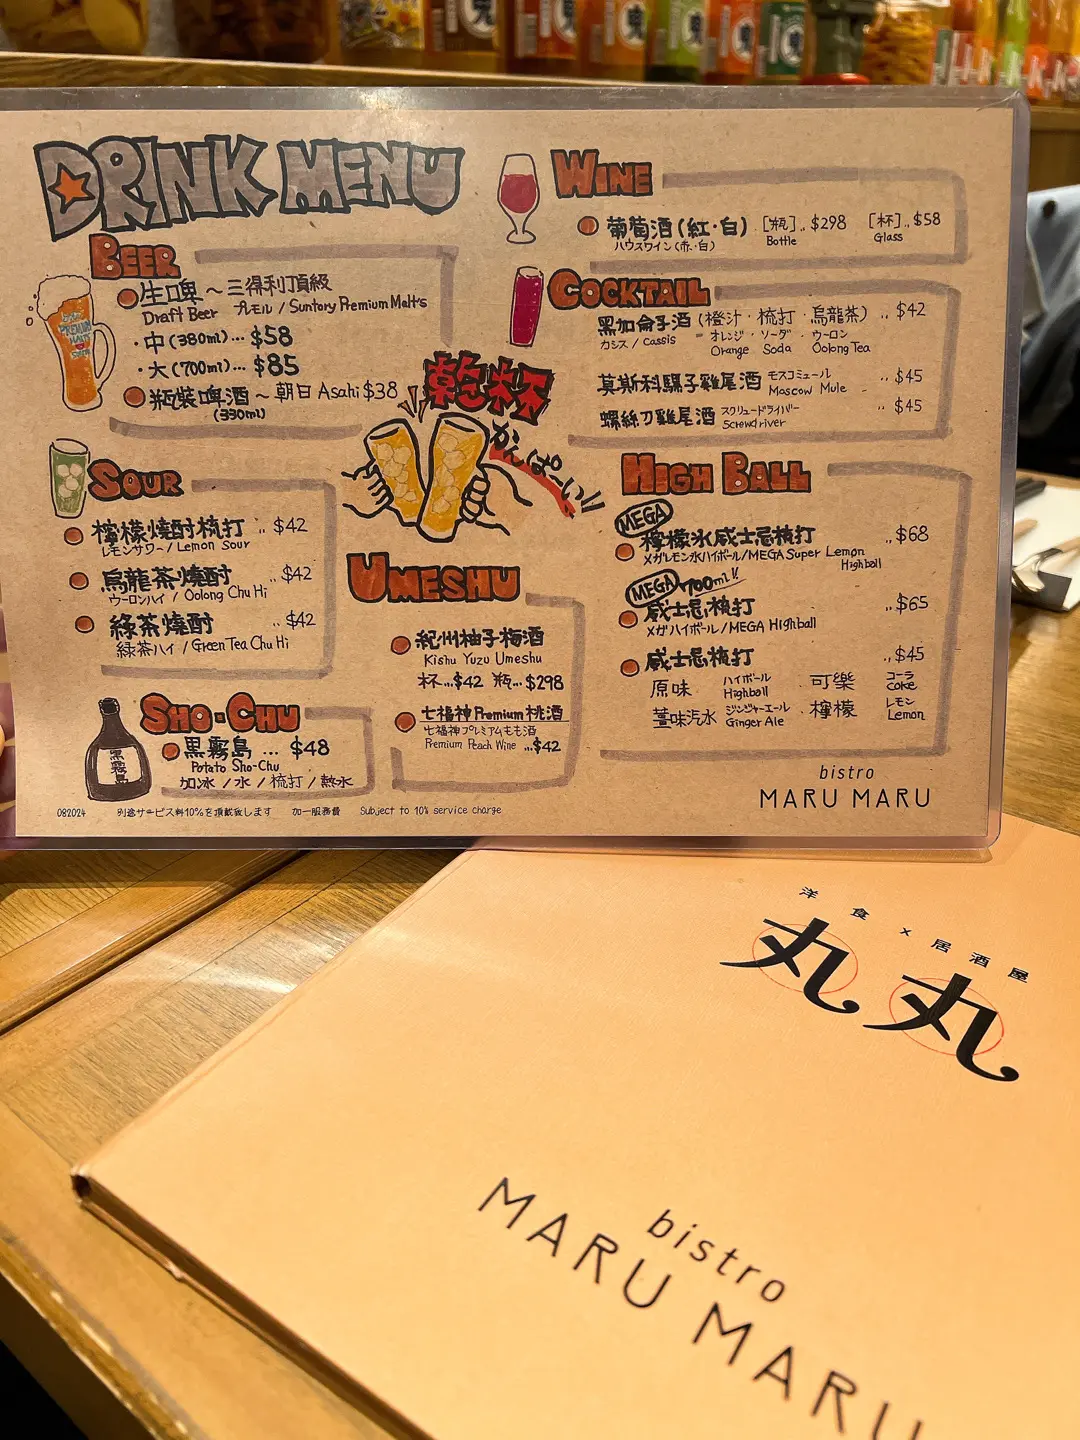 DRINK MENU
BEER
生啤 ~ 三得利頂級
Draft Beer プレモル / Suntory Premium Malt's
・中 (380ml)... $58
・大 (700ml)... $85
瓶裝啤酒 ~ 朝日 Asahi $38
(330ml)
SOUR
檸檬燒酎梳打 .. $42
レモンサワー / Lemon Sour
烏龍茶燒酎 .. $42
ウーロンハイ / Oolong Chu Hi
綠茶燒酎 .. $42
緑茶ハイ / Green Tea Chu Hi
SHO-CHU
黒霧島
黒霧島 ... $48
Potato Sho-Chu
加冰 / 水 / 梳打 / 熱水
乾杯
かんぱーい!!
UMESHU
紀州柚子梅酒
Kishu Yuzu Umeshu
杯...$42 瓶...$298
七福神 Premium 桃酒
七福神プレミアムもも酒
Premium Peach Wine ...$42
WINE
葡萄酒 (紅・白) [瓶].. $298 [杯].. $58
ハウスワイン (赤・白) Bottle Glass
COCKTAIL
黑加侖子酒 (橙汁・梳打・烏龍茶) .. $42
カシス / Cassis - オレンジ・ソーダ・ウーロン
Orange Soda Oolong Tea
莫斯科騾子雞尾酒 モスコミュール .. $45
Mascow Mule
螺絲刀雞尾酒 スクリュードライバー .. $45
Screwdriver
HIGH BALL
MEGA
檸檬氷威士忌梳打 .. $68
メガレモン氷ハイボール/MEGA Super Lemon
Highball
MEGA 700ml!!
威士忌梳打 .. $65
メガハイボール/MEGA Highball
威士忌梳打 .. $45
原味 ハイボール Highball ・可樂 コーラ Coke
薑味汽水 ジンジャーエール Ginger Ale ・檸檬 レモン Lemon
bistro
MARU MARU
082024 別途サービス料10%を頂戴致します 加一服務費 Subject to 10% service charge
洋食×居酒屋
丸丸
bistro
MARU MARU